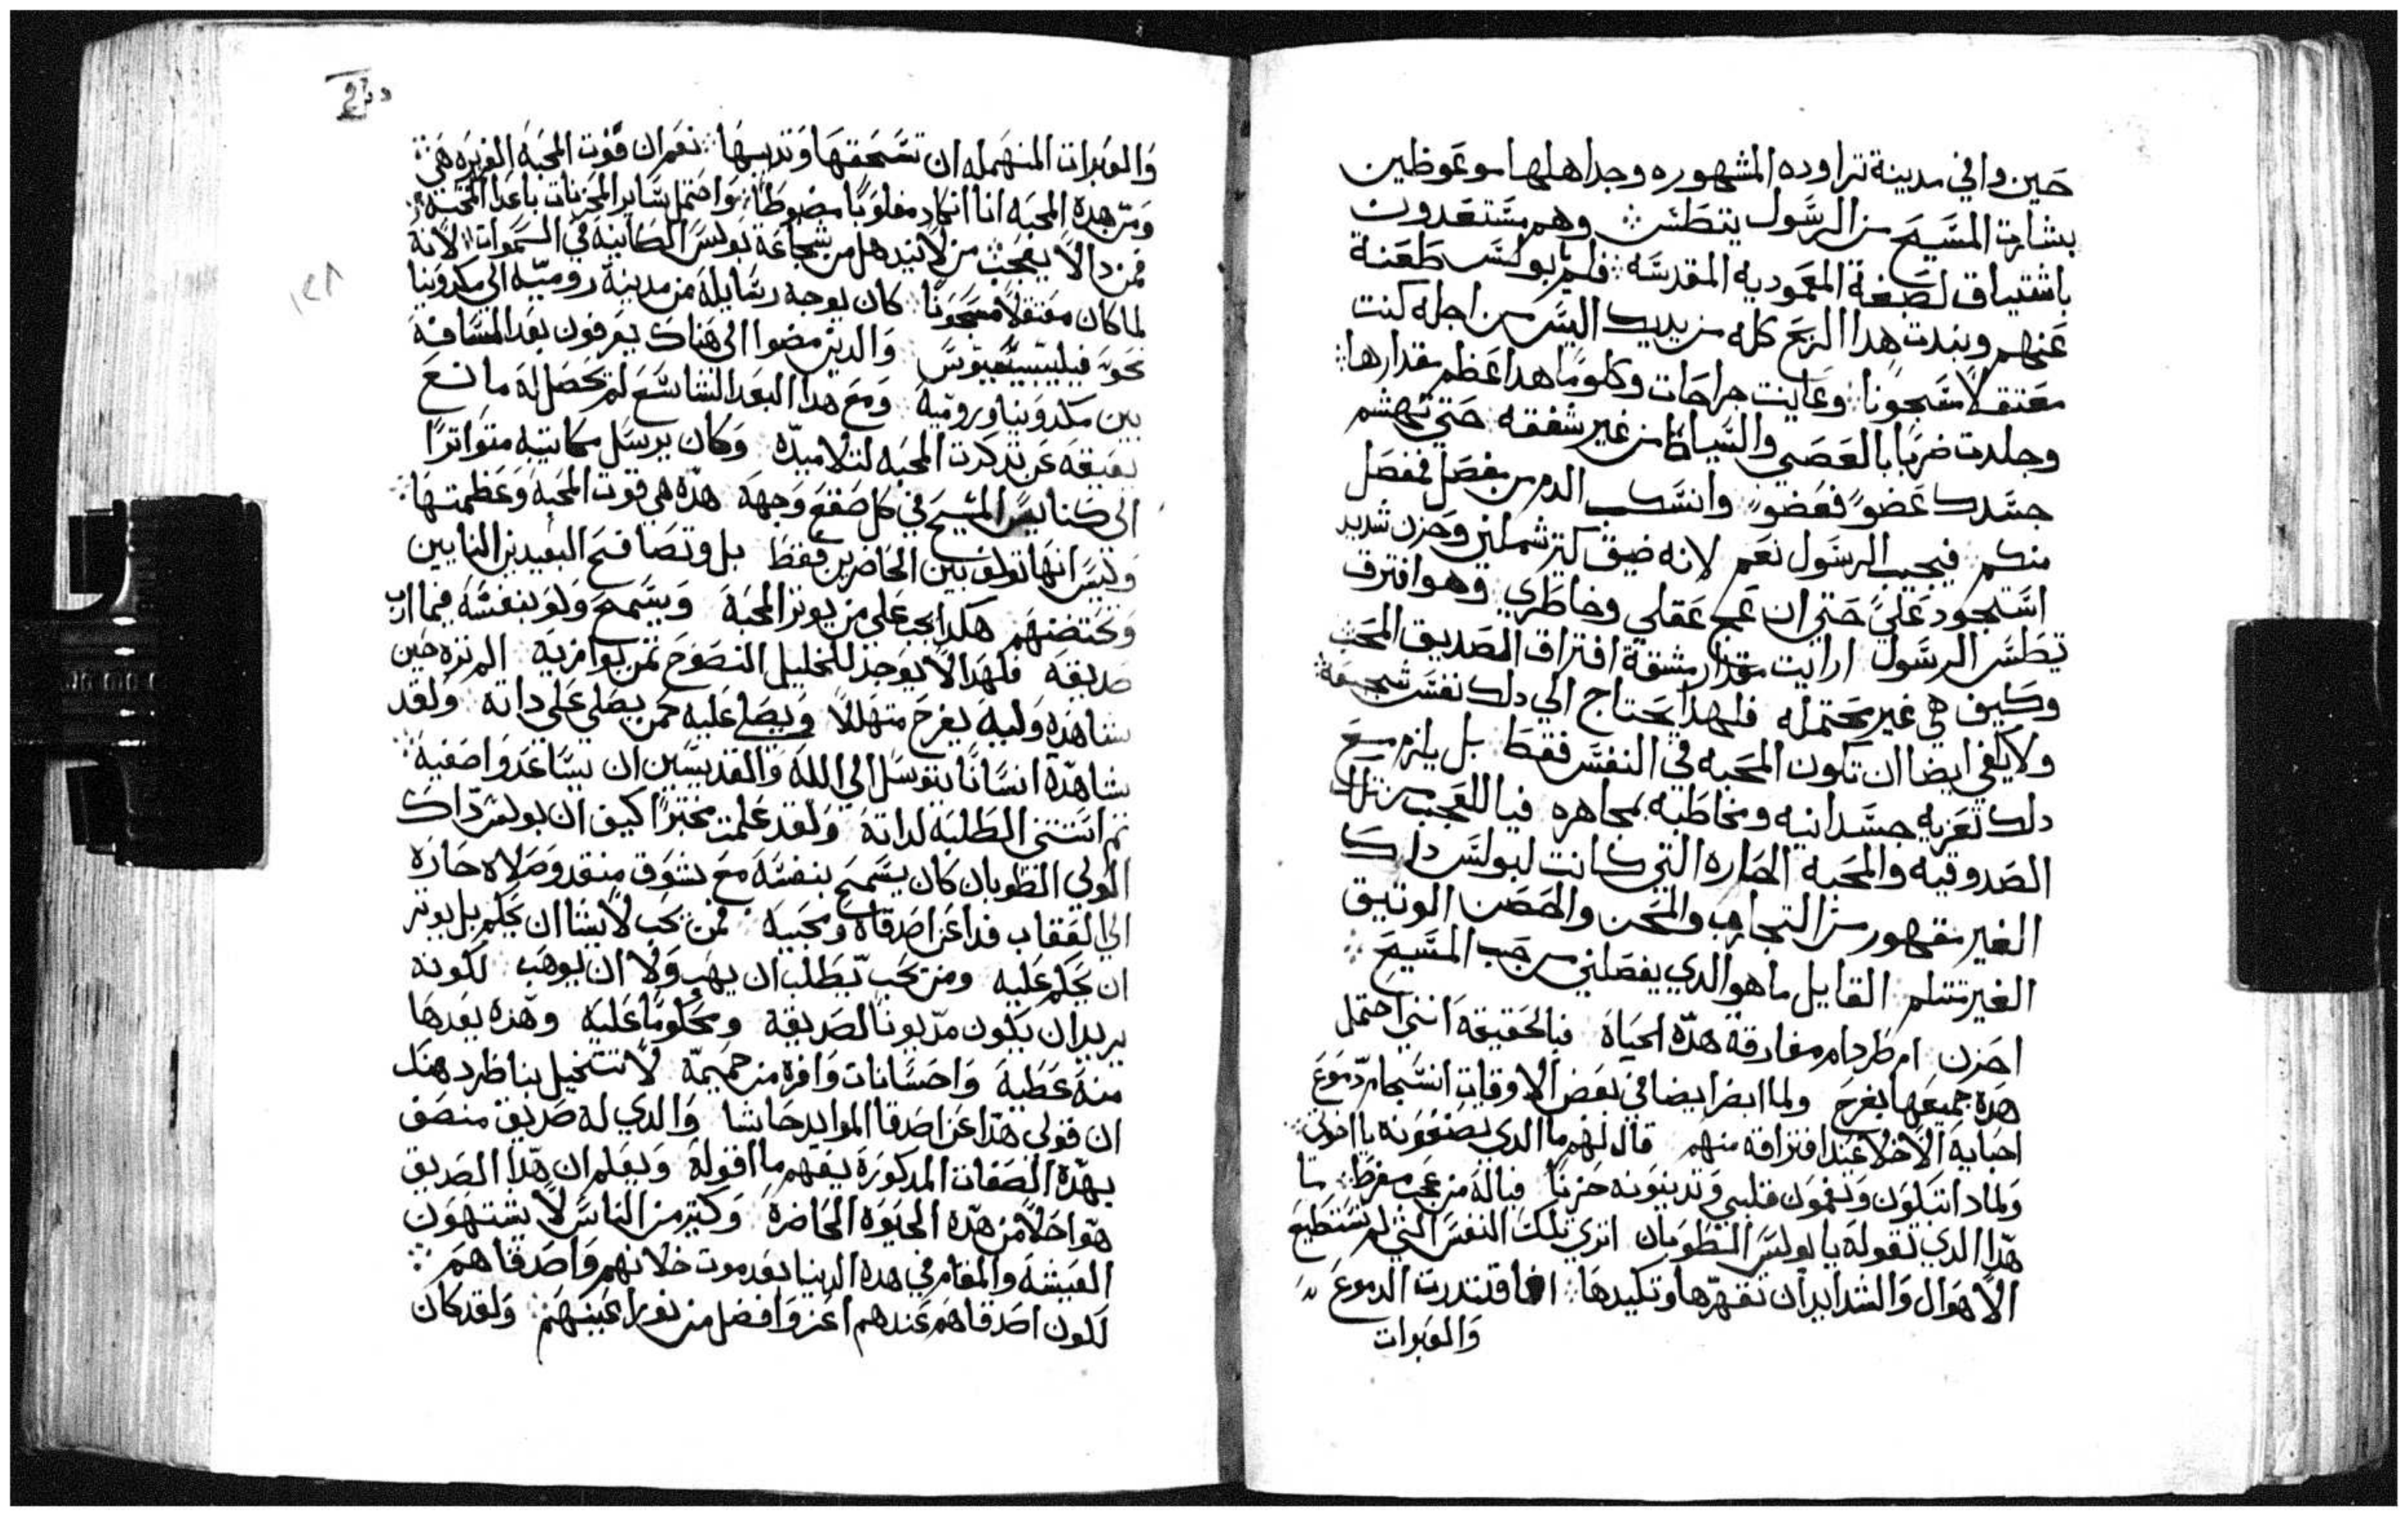 حين وافي مدينة تراوده المشهوره وجد اهلها موعوظين
بشارة المسيح من الرسول بتطش وهم مستعدون
باشتياق لصبغة المعموديه المقدسه فلم يا بولس طعنة
عنهم ونبدت هدا الربح كله من يديك اليس من اجله كنت
معتقلًا مسجونا وعاينت جراحات وكلومًا هدا عظم مقدارها
وجلدت ضربا بالعصي والسياط من غير شفقه حتي تهشم
جسدك عضوً فعضوً وانسكب الدم من مفصل فمفصل
منكم فيجيب الرسول نعم لانه ضيق كتير شملني وحزن شديد
استحود علي حتي ان عمج عقلي وخاطري وهو افترق
تطس الرسول ارايت مقدار مشقة افتراق الصديق المحب
وكيف هي غير محتمله فلهدا يحتاج الي دلك نفس شجيعة
ولا يكفي ايضا ان تكون المحبه في النفس فقط بل يلزم مع
دلك تعزيه جسدانيه ومخاطبه مجاهره فيا للعجب من تلك
الصدوقيه والمحبه الحاره التي كانت لبولس داك
الغير مقهور من التجارب والمحن والحصن الوتيق
الغير متتلم القايل ما هو الدي يفصلني من حب المسيح
احزن ام طرد ام مفارقة هده الحياة فبالحقيقه انني احتمل
هده جميعها بفرح ولما ابصر ايضا في بعض الاوقات انسجام دموع
احبايه الاخلا عند افتراقه منهم قال لهم ما الدي تصنعونه يا اخوتي
ولمادا تبكون وتغمون قلبي وتديبونه حزنًا فياله من عجب مفرط ما
هدا الدي تقوله يا بولس الطوبان اتري تلك النفس التي لم تستطيع
الاهوال والشدايد ان تقهرها وتكيدها افاقتدرت الدموع
والعبرات
والعبرات المنهمله ان تسحقها وتديبها نعم ان قوت المحبه الغزيره هي
ومن هده المحبه انا انكاد مغلوبًا مضبوطًا واحتمل ساير المحزنات ما عدا المحبه
فمن دا لا يعجب من لا يندهل من شجاعة بولس الكاينه في السموات لانه
لما كان معتقلًا مسجونًا كان يوجه رسايله من مدينة روميه الي مكدونيا
نحو فيليبسيوس والدين مضوا الي هناك يعرفون بعد المسافة
بين مكدونيا وروميه ومع هدا البعد الشاسع لم تحصل له مانع
يعيقه عن تدكرت المحبه لتلاميده وكان يرسل مكاتيبه متواترًا
الي كنايس المسيح في كل صقع وجهه هده هي قوت المحبه وعظمتها
وليس انها تولف بين الحاضرين فقط بل وتصافح البعيدين النايين
وتحتضنهم هكدا يجب علي من يوتر المحبه ويسمح ولو بنفسه فيما ارب
صديقه فلهدا لا يوجد للخليل النصوح تمن يوازيه الم تره حين
شاهده وليه يفرح متهللًا ويصلي عليه كمن يصلي علي داته ولقد
شاهده انسانًا يتوسل الي الله والقديسين ان يساعدوا صفيه
تم استتني الطلبه لداته ولقد علمت مختبرًا كيف ان بولس داك
الولي الطوبان كان يسمح بنفسه مع تشوق متقد وصلاه حاره
الي العقاب فدا عن اصدقاه ومحبيه فمن يحب لا يشا ان يحكم بل يوتر
ان يحكم عليه ومن يحب يطلب ان يهب ولا ان يوهب لكونه
يريد ان يكون مديونًا لصديقه ومحكومًا عليه وهده يعدها
منه عطيه واحسانات وافره من حميمه لا تتخيل بنا ظر دهنك
ان قولي هدا عن اصدقا الموايد حاشا والدي له صديق منصف
بهده الصفات المدكوره يفهم ما اقوله ويعلم ان هدا الصديق
هو احلًا من هده الحيوه الحاضره وكتير من الناس لا يشتهون
العيشه والمقام في هده الدنيا بعد موت خلانهم واصدقاهم
لكون اصدقاهم عندهم اعز وافضل من نورا عينهم ولقد كان